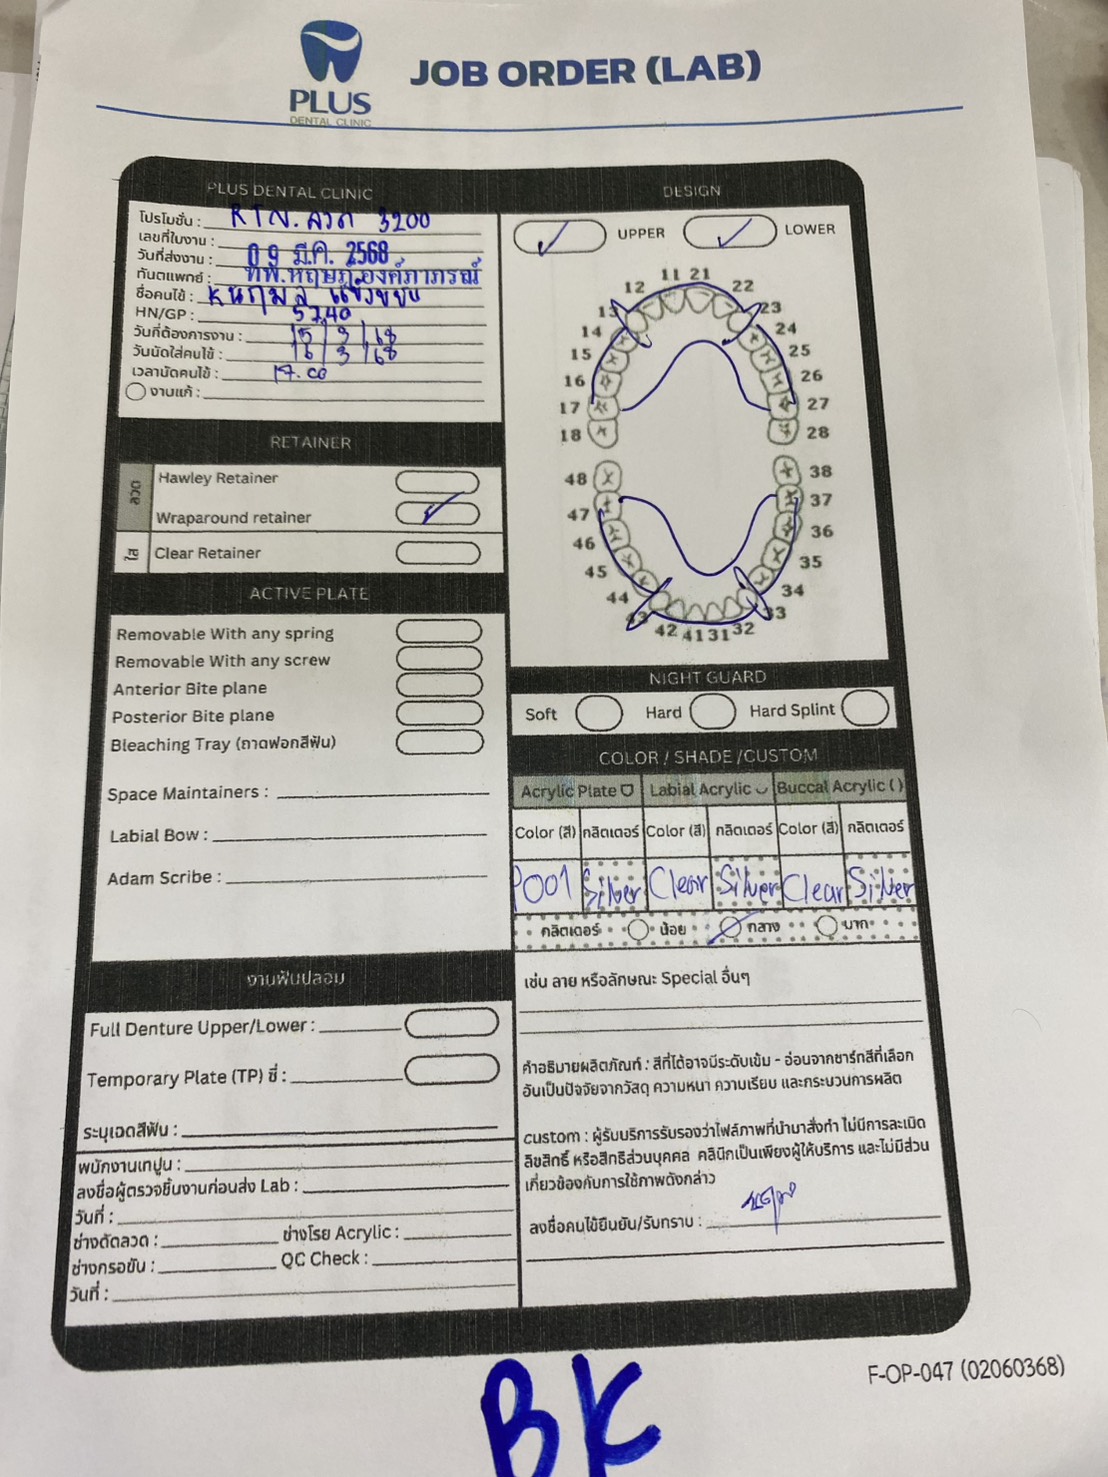 PLUS
DENTAL CLINIC
JOB ORDER (LAB)
PLUS DENTAL CLINIC
โปรโมชั่น : RTN. ลวด 3200
เลขที่ใบงาน :
วันที่ส่งงาน : 09 มี.ค. 2568
ทันตแพทย์ : ทพ.หฤษฎ์ องค์ภาภรณ์
ชื่อคนไข้ :
HN/GP : 5740
วันที่ต้องการงาน : 15 / 3 / 68
วันนัดใส่คนไข้ : 16 / 3 / 68
เวลานัดคนไข้ : 17.00
งานแก้ :
RETAINER
ลวด
Hawley Retainer
Wraparound retainer
ใส
Clear Retainer
ACTIVE PLATE
Removable With any spring
Removable With any screw
Anterior Bite plane
Posterior Bite plane
Bleaching Tray (ถาดฟอกสีฟัน)
Space Maintainers :
Labial Bow :
Adam Scribe :
งานฟันปลอม
Full Denture Upper/Lower :
Temporary Plate (TP) ซี่ :
ระบุเฉดสีฟัน :
พนักงานเทปูน :
ลงชื่อผู้ตรวจชิ้นงานก่อนส่ง Lab :
วันที่ :
ช่างดัดลวด : ช่างโรย Acrylic :
ช่างกรอขัน : QC Check :
วันที่ :
DESIGN
UPPER LOWER
11 21
12 22
13 23
14 24
15 25
16 26
17 27
18 28
48 38
47 37
46 36
45 35
44 34
43 33
42 41 31 32
NIGHT GUARD
Soft Hard Hard Splint
COLOR / SHADE /CUSTOM
Acrylic Plate Labial Acrylic Buccal Acrylic ( )
Color (สี) กลิตเตอร์ Color (สี) กลิตเตอร์ Color (สี) กลิตเตอร์
P001 Silver Clear Silver Clear Silver
กลิตเตอร์ น้อย กลาง มาก
เช่น ลาย หรือลักษณะ Special อื่นๆ
คำอธิบายผลิตภัณฑ์ : สีที่ได้อาจมีระดับเข้ม - อ่อนจากชาร์ทสีที่เลือก
อันเป็นปัจจัยจากวัสดุ ความหนา ความเรียบ และกระบวนการผลิต
custom : ผู้รับบริการรับรองว่าไฟล์ภาพที่นำมาสั่งทำ ไม่มีการละเมิด
ลิขสิทธิ์ หรือสิทธิส่วนบุคคล คลินิกเป็นเพียงผู้ให้บริการ และไม่มีส่วน
เกี่ยวข้องกับการใช้ภาพดังกล่าว
ลงชื่อคนไข้ยืนยัน/รับทราบ :
F-OP-047 (02060368)
BK